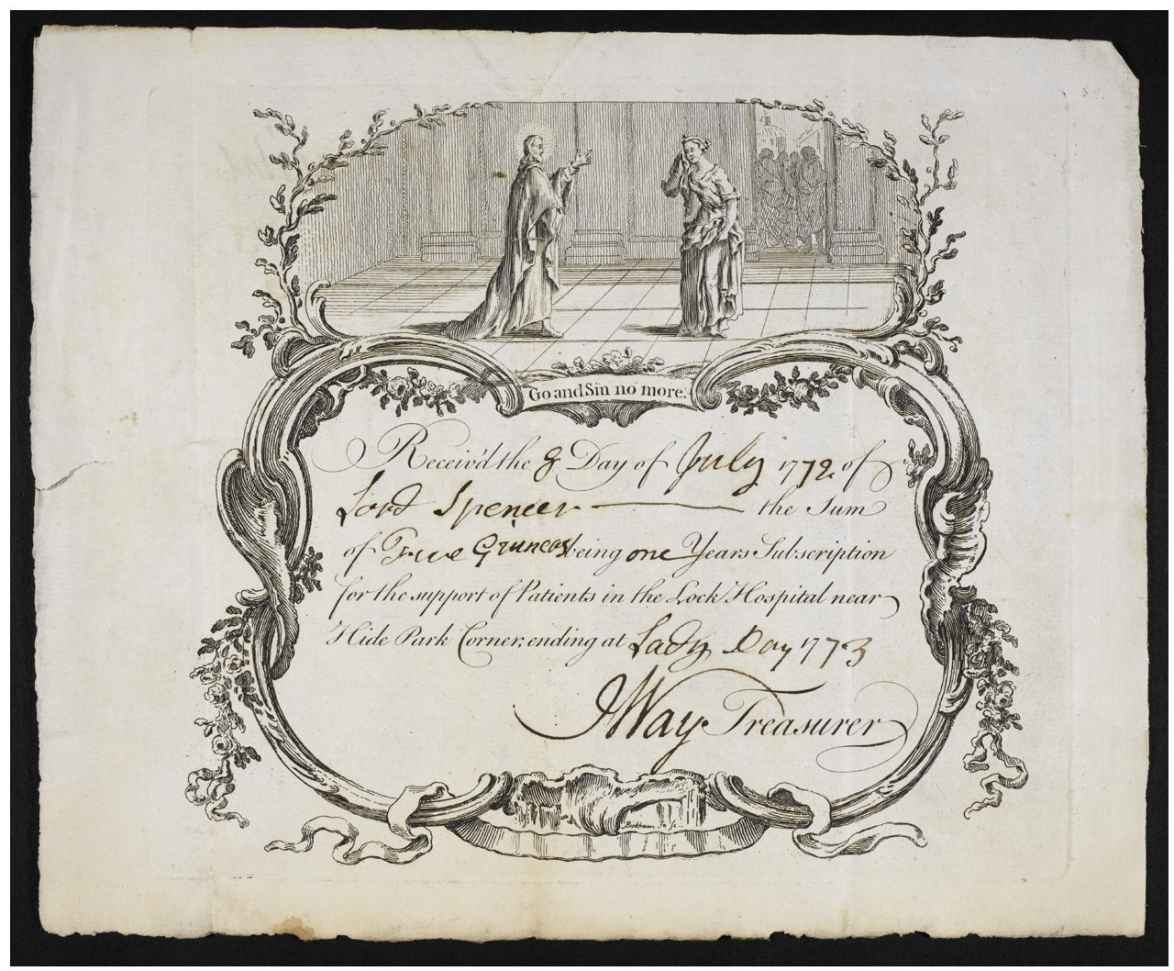 Go and Sin no more.
Receiv'd the 8 Day of July 1772 of
Lord Spencer the Sum
of Five Guineas being one Years Subscription
for the support of Patients in the Lock Hospital near
Hide Park Corner, ending at Lady Day 1773
JWay Treasurer